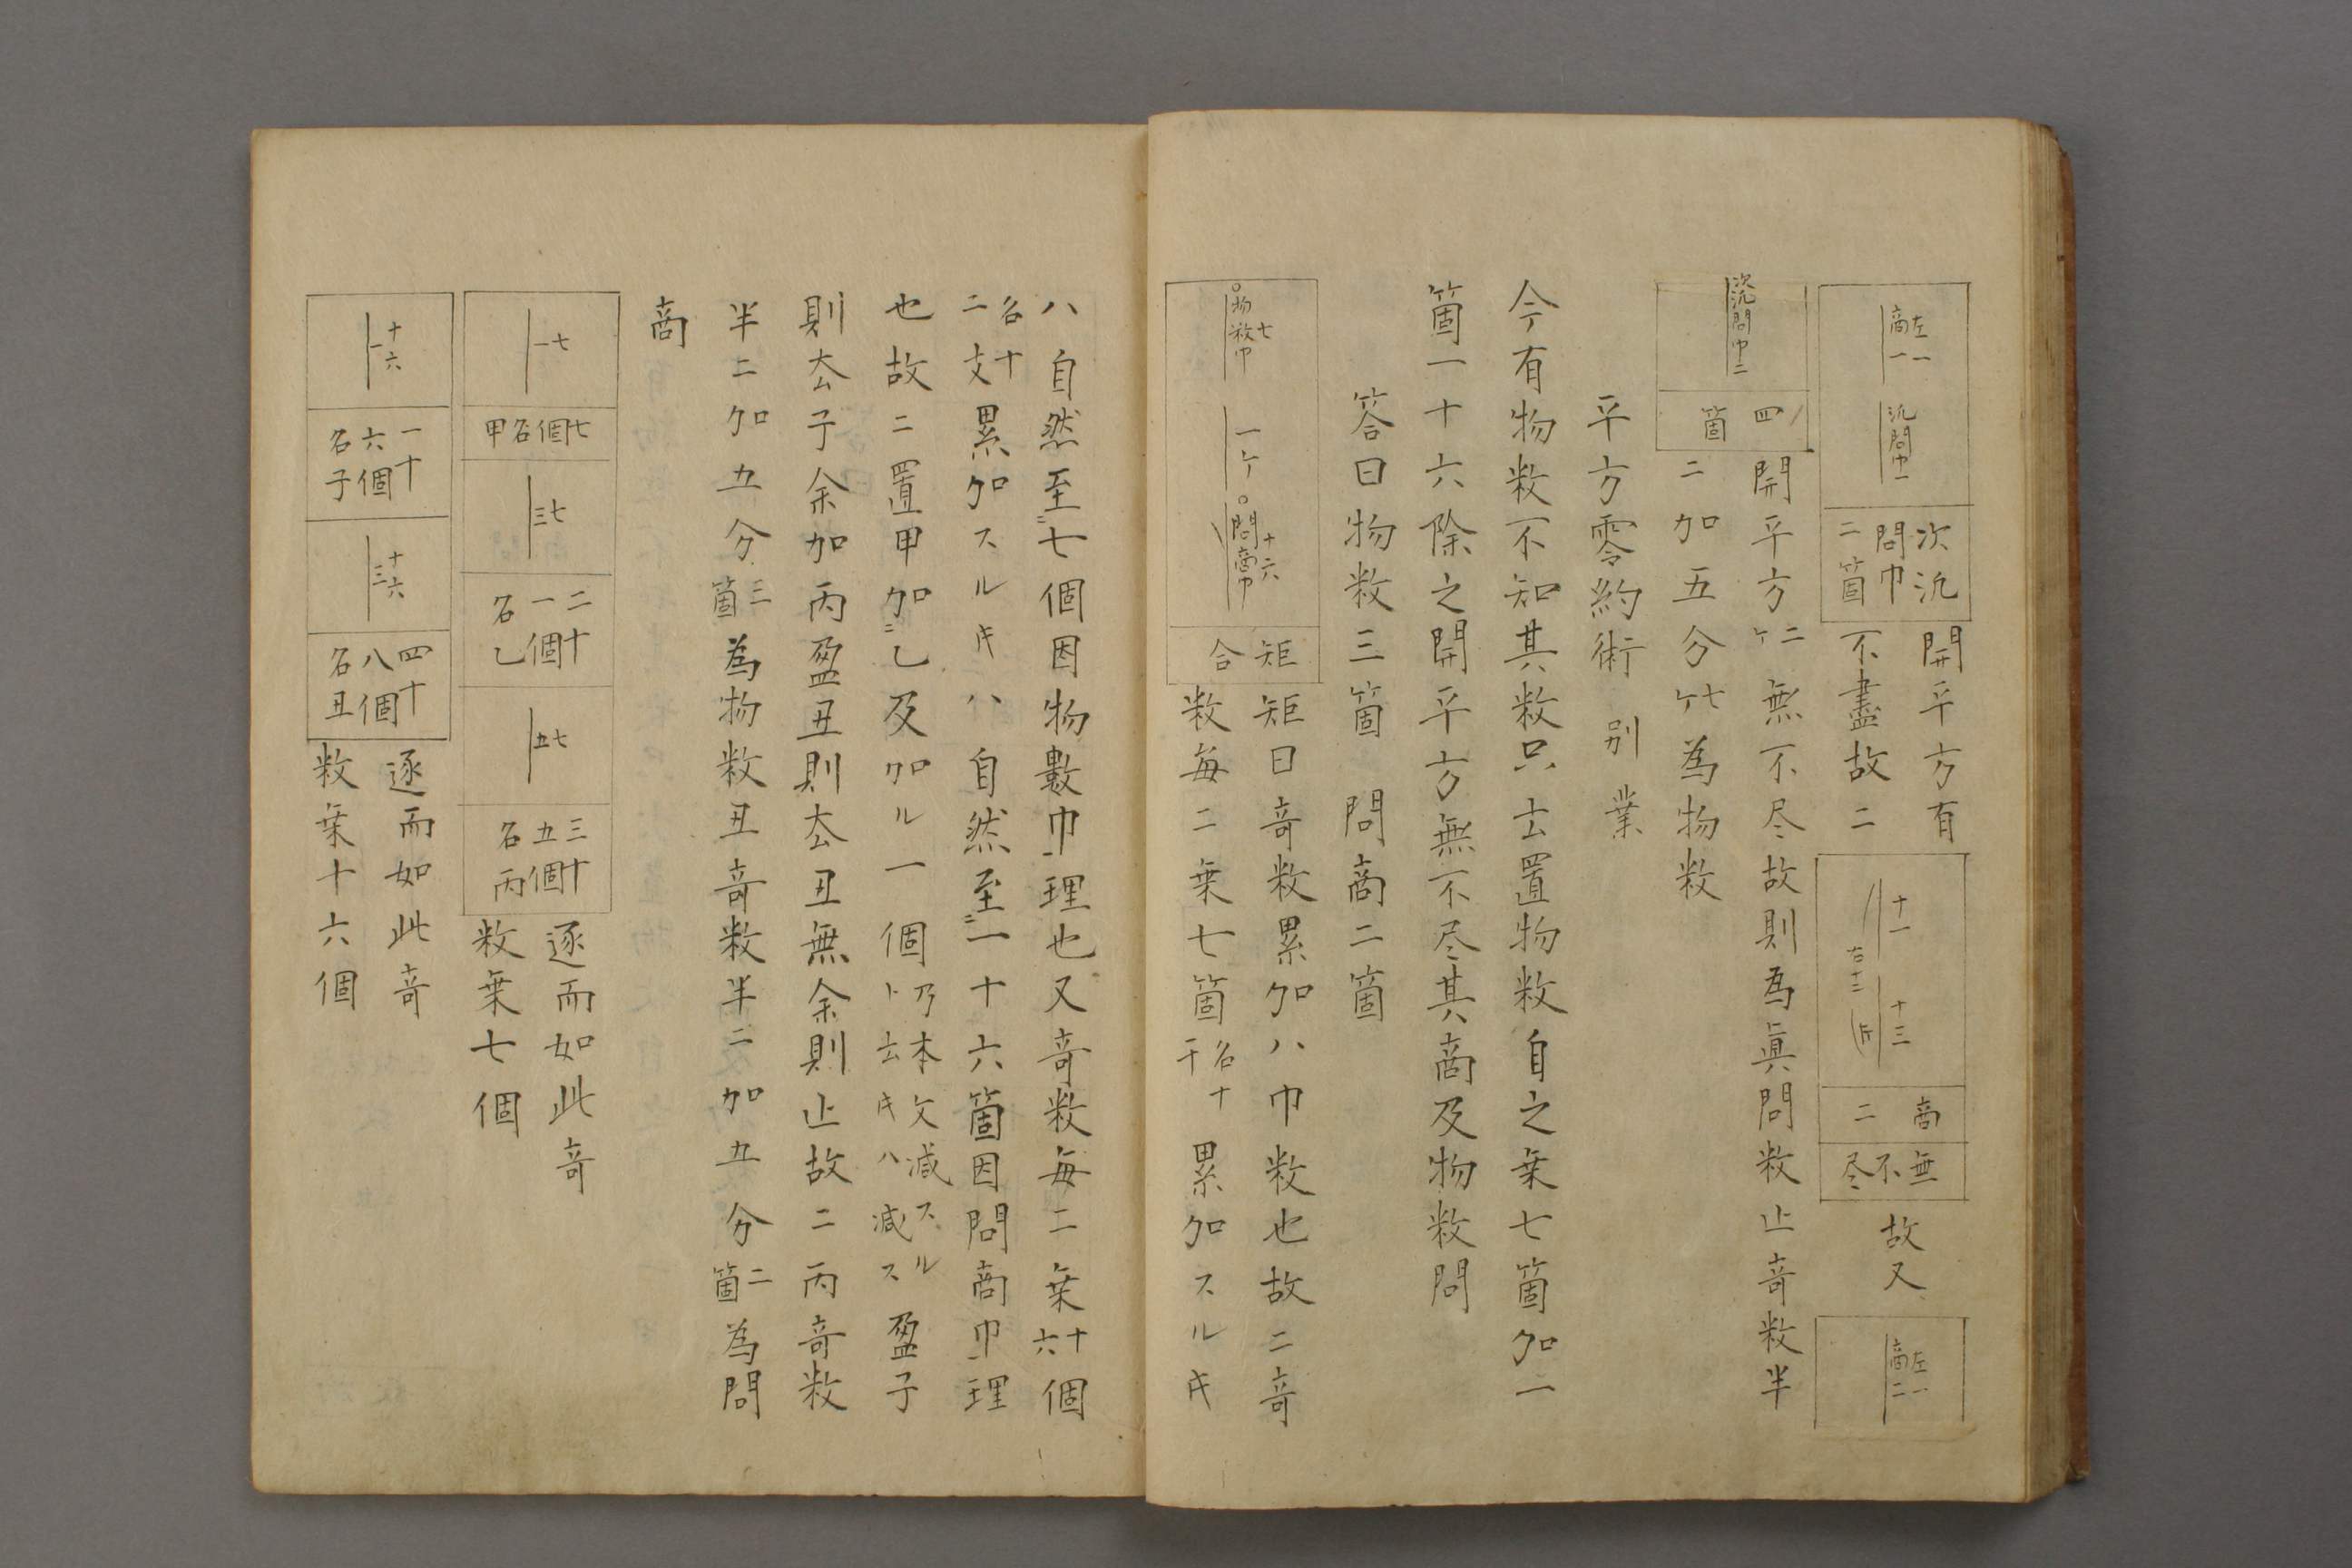 左一商一
氿問巾一
次氿問巾二箇
開平方有
不盡故二
十一
十三
右十三
商二
無不尽
故又
左一商二
次氿問巾二
四箇
開平方二ケ無不尽故則為眞問数止竒数半
二加五分七ケ為物数
平方零約術 別業
今有物数不知其数只云置物数自之乗七箇加一
箇一十六除之開平方無不尽其商及物数問
答曰物数三箇 問商二箇
七物数巾
一ケ
十六問商巾
矩合
矩曰竒数累加ハ巾数也故二竒
数毎二乗七箇名十干累加スル㐧
ハ自然至ニ七個因物數巾理也又竒数毎二乗十六個
名十二支累加スル㐧ハ自然至ニ一十六箇因問商巾理
也故二置甲加ニ乙及加ル一個乃本文減スルト云㐧ハ減ス盈子
則厺子余加丙盈丑則厺丑無余則止故二丙竒数
半二加五分三箇為物数丑竒数半二加五分二箇為問
商
七一
七個名甲
七三
二十一個名乙
七五
三十五個名丙
逐而如此竒
数乗七個
十六一
一十六個名子
十六三
四十八個名丑
逐而如此竒
数乗十六個